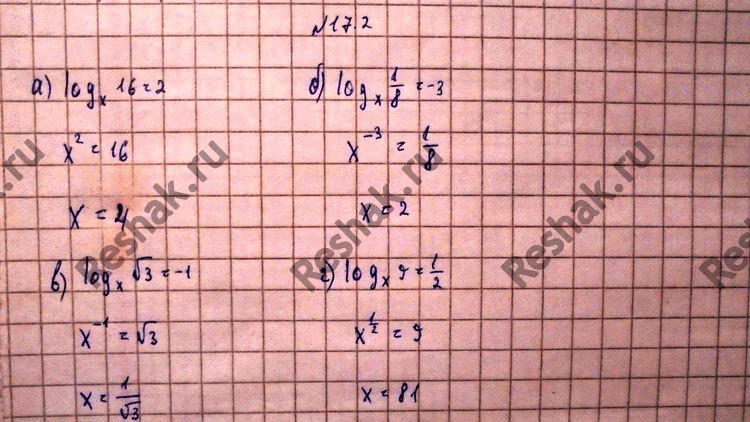 №17.2
а) log_x 16 = 2
x² = 16
x = 4
б) log_x 1/8 = -3
x⁻³ = 1/8
x = 2
в) log_x √3 = -1
x⁻¹ = √3
x = 1/√3
г) log_x 9 = 1/2
x^(1/2) = 9
x = 81
Reshak.ru
Reshak.ru
Reshak.ru
Reshak.ru